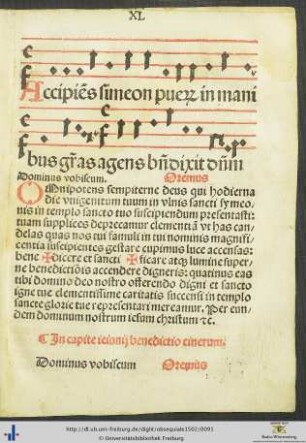 XL
Accipiēs simeon pueꝝ in mani
bus gr̄as agens bn̄dixit dn̄m
Dominus vobiscum. Oremus
OMnipotens sempiterne deus qui hodierna
die vnigenitum tuum in vlnis sancti symeo-
nis in templo sancto tuo suscipiendum presentasti:
tuam supplices deprecamur clementiā vt has can-
delas quas nos tui famuli in tui nominis magnifi-
centia suscipientes gestare cupimus luce accensas:
bene ✠ dicere et sancti ✠ ficare atqꝫ lumine super-
ne benedictiōis accendere digneris: quatinus eas
tibi domino deo nostro offerendo digni et sancto
igne tue clementissime caritatis succensi in templo
sancte glorie tue representari mereamur. Per eun-
dem dominum nostrum iesum christum ⁊c.
In capite ieiunij benedictio cinerum.
Dominus vobiscum Oremus
http://dl.ub.uni-freiburg.de/diglit/obsequiale1502/0091
© Universitätsbibliothek Freiburg
Baden-Württemberg